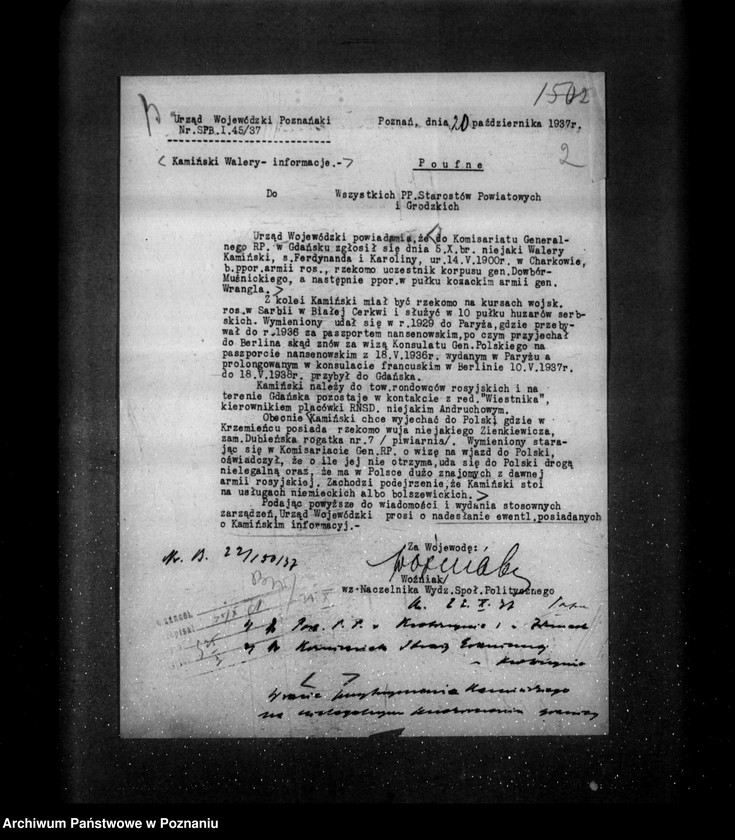 1502
Urząd Wojewódzki Poznański
Nr.SPB.I.45/37
Poznań, dnia 20 października 1937r.
2
< Kamiński Walery- informacje.- >
Poufne
Do Wszystkich PP.Starostów Powiatowych
i Grodzkich
Urząd Wojewódzki powiadamia,że do Komisariatu General-
nego RP. w Gdańsku zgłosił się dnia 5.X.br. niejaki Walery
Kamiński, s.Ferdynanda i Karoliny, ur.14.V.1900r. w Charkowie,
b.ppor.armii ros., rzekomo uczestnik korpusu gen.Dowbór-
Muśnickiego, a następnie ppor.w pułku kozackim armii gen.
Wrangla. >
Z kolei Kamiński miał być rzekomo na kursach wojsk.
ros.w Sarbii w Białej Cerkwi i służyć w 10 pułku huzarów serb-
skich. Wymieniony udał się w r.1929 do Paryża,gdzie przeby-
wał do r.1936 za paszportem nansenowskim,po czym przyjechał
do Berlina skąd znów za wizą Konsulatu Gen.Polskiego na
paszporcie nansenowskim z 18.V.1936r. wydanym w Paryżu a
prolongowanym w konsulacie francuskim w Berlinie 10.V.1937r.
do 18.V.1938r. przybył do Gdańska.
Kamiński należy do tow.rondowców rosyjskich i na
terenie Gdańska pozostaje w kontakcie z red."Wiestnika",
kierownikiem placówki RNSD. niejakim Andruchowym.
Obecnie Kamiński chce wyjechać do Polski gdzie w
Krzemieńcu posiada rzekomo wuja niejakiego Zienkiewicza,
zam.Dubieńska rogatka nr.7 / piwiarnia/. Wymieniony stara-
jąc się w Komisariacie Gen.RP. o wizę na wjazd do Polski,
oświadczył, że o ile jej nie otrzyma,uda się do Polski drogą
nielegalną oraz, że ma w Polsce dużo znajomych z dawnej
armii rosyjskiej. Zachodzi podejrzenie,że Kamiński stoi
na usługach niemieckich albo bolszewickich. >
Podając powyższe do wiadomości i wydania stosownych
zarządzeń,Urząd Wojewódzki prosi o nadesłanie ewentl.posiadanych
o Kamińskim informacyj.-
Za Wojewodę:
N. B. 22/150/37
Woźniak/
wz.Naczelnika Wydz.Społ.Politycznego
22.X.37
Kamińskiego
Archiwum Państwowe w Poznaniu